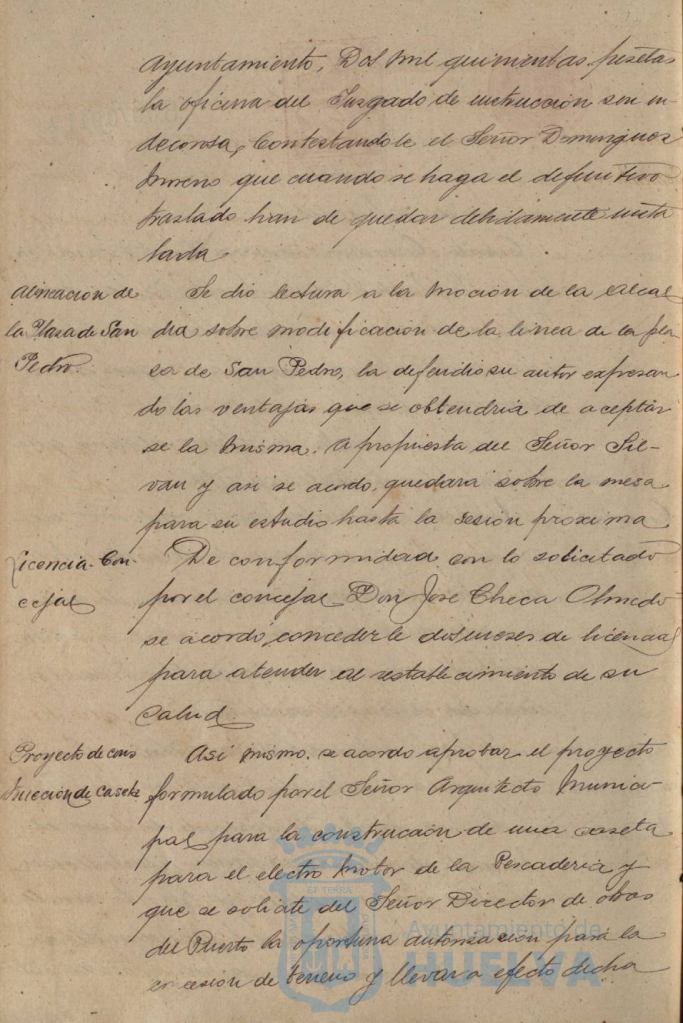 Ayuntamiento, Dos mil quinientas pesetas
la oficina del Juzgado de instrucción sea in-
decorosa, Contestandole el Señor Dominguez
Moreno que cuando se haga el definitivo
traslado han de quedar debidamente insta
lada
Alineación de
la Plaza de San
Pedro.
Se dio lectura a la moción de la Alcal
dia sobre modificación de la linea de la pla-
za de San Pedro, la defendio su autor expresan
do las ventajas que se obtendria de aceptar
se la misma. A propuesta del Señor Sil-
van y asi se acordo, quedara sobre la mesa
para su estudio hasta la sesión proxima
Licencia-Con-
cejal
De conformidad con lo solicitado
por el concejal Don Jose Checa Olmedo
se acordó concederle dos meses de licencia
para atender al restablecimiento de su
salud
Proyecto de cons
trucción de caseta
Asi mismo. se acordo aprobar el proyecto
formulado por el Señor Arquitecto Munici-
pal para la construcción de una caseta
para el electro motor de la Pescaderia y
que se solicite del Señor Director de obras
del Puerto la oportuna autorización para la
cesión de terreno y llevar a efecto dicha
Ayuntamiento de
HUELVA